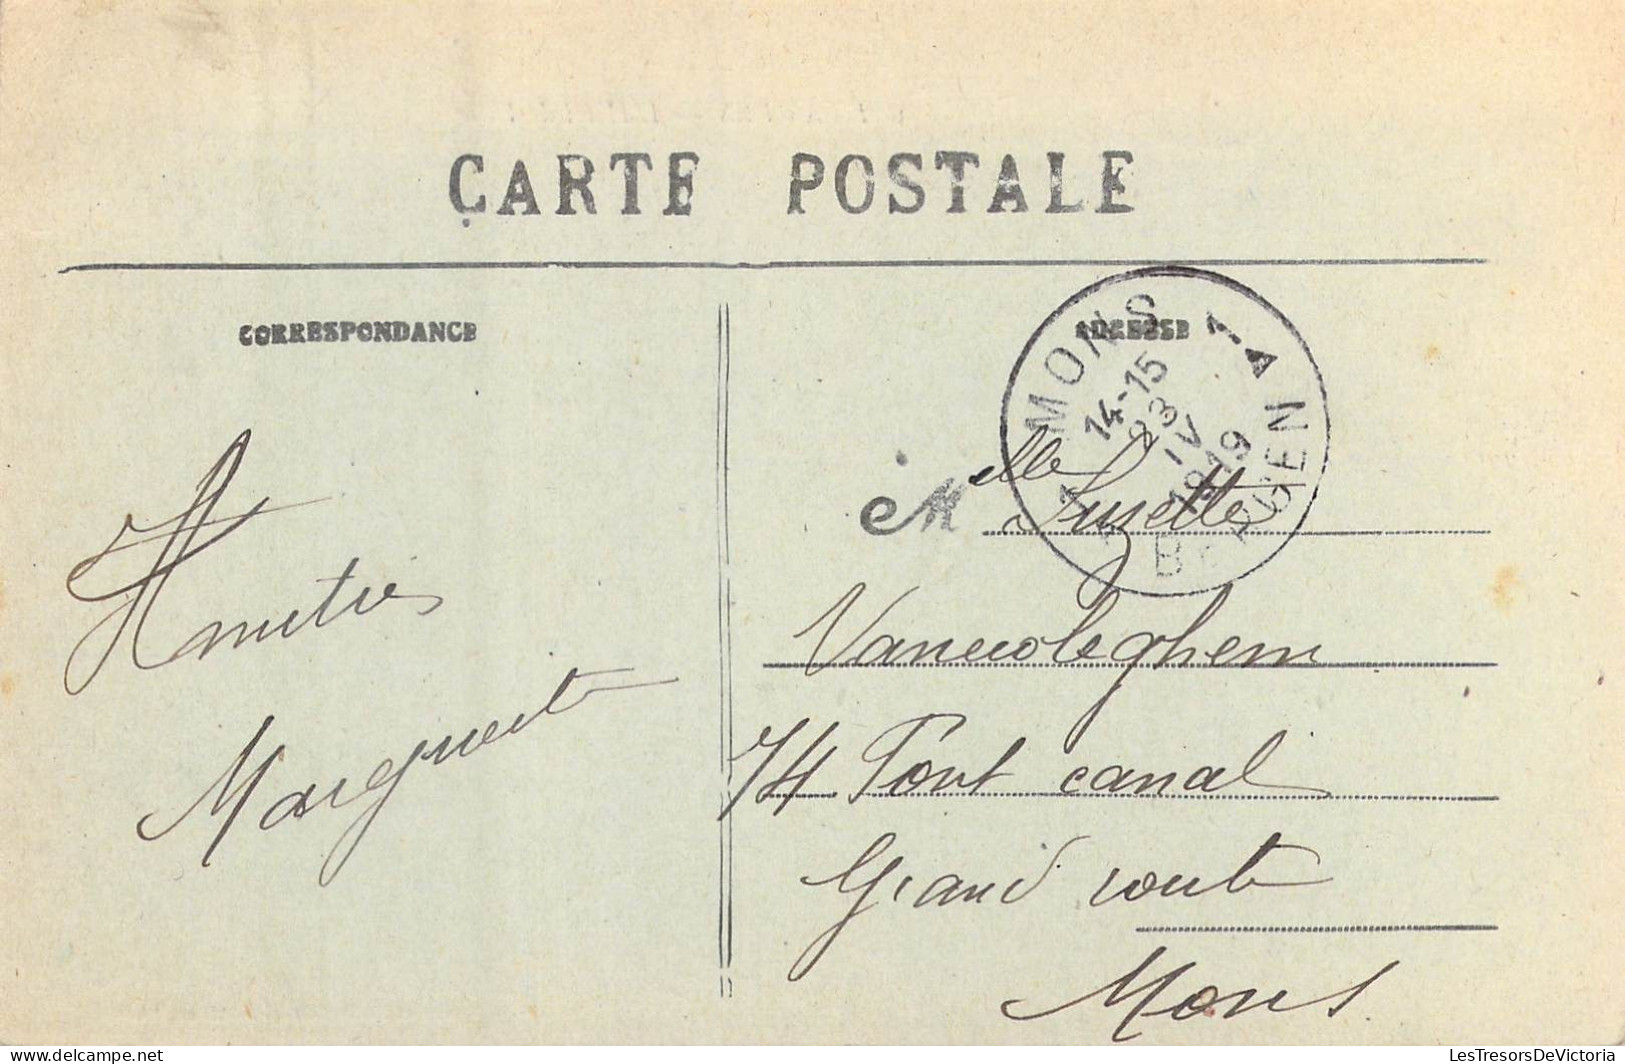 CARTE POSTALE
CORRESPONDANCE
Amitiés
Marguerite
ADRESSE
MONS 1 A
14-15
23
IV
1919
BERGEN
Mlle Suzette
74 Pont canal
Grand route
Mons
LesTresorsDeVictoria